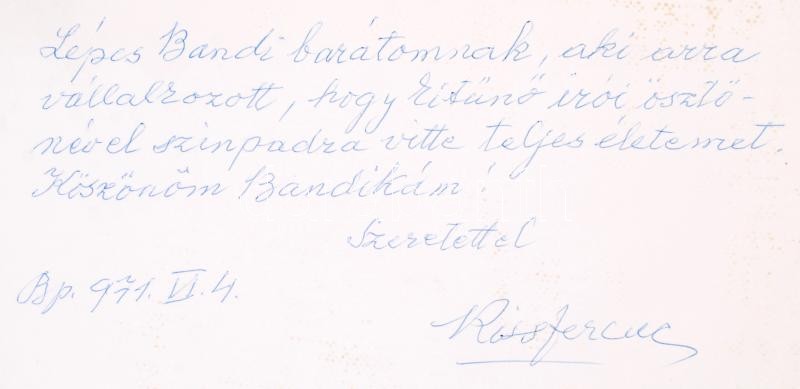 Lépcs Bandi barátomnak, aki arra
vállalkozott, hogy kitünő irói ösztö-
nével szinpadra vitte teljes életemet.
Köszönöm Bandikám!
Szeretettel
Bp. 971. VI. 4.
Kiss Ferenc